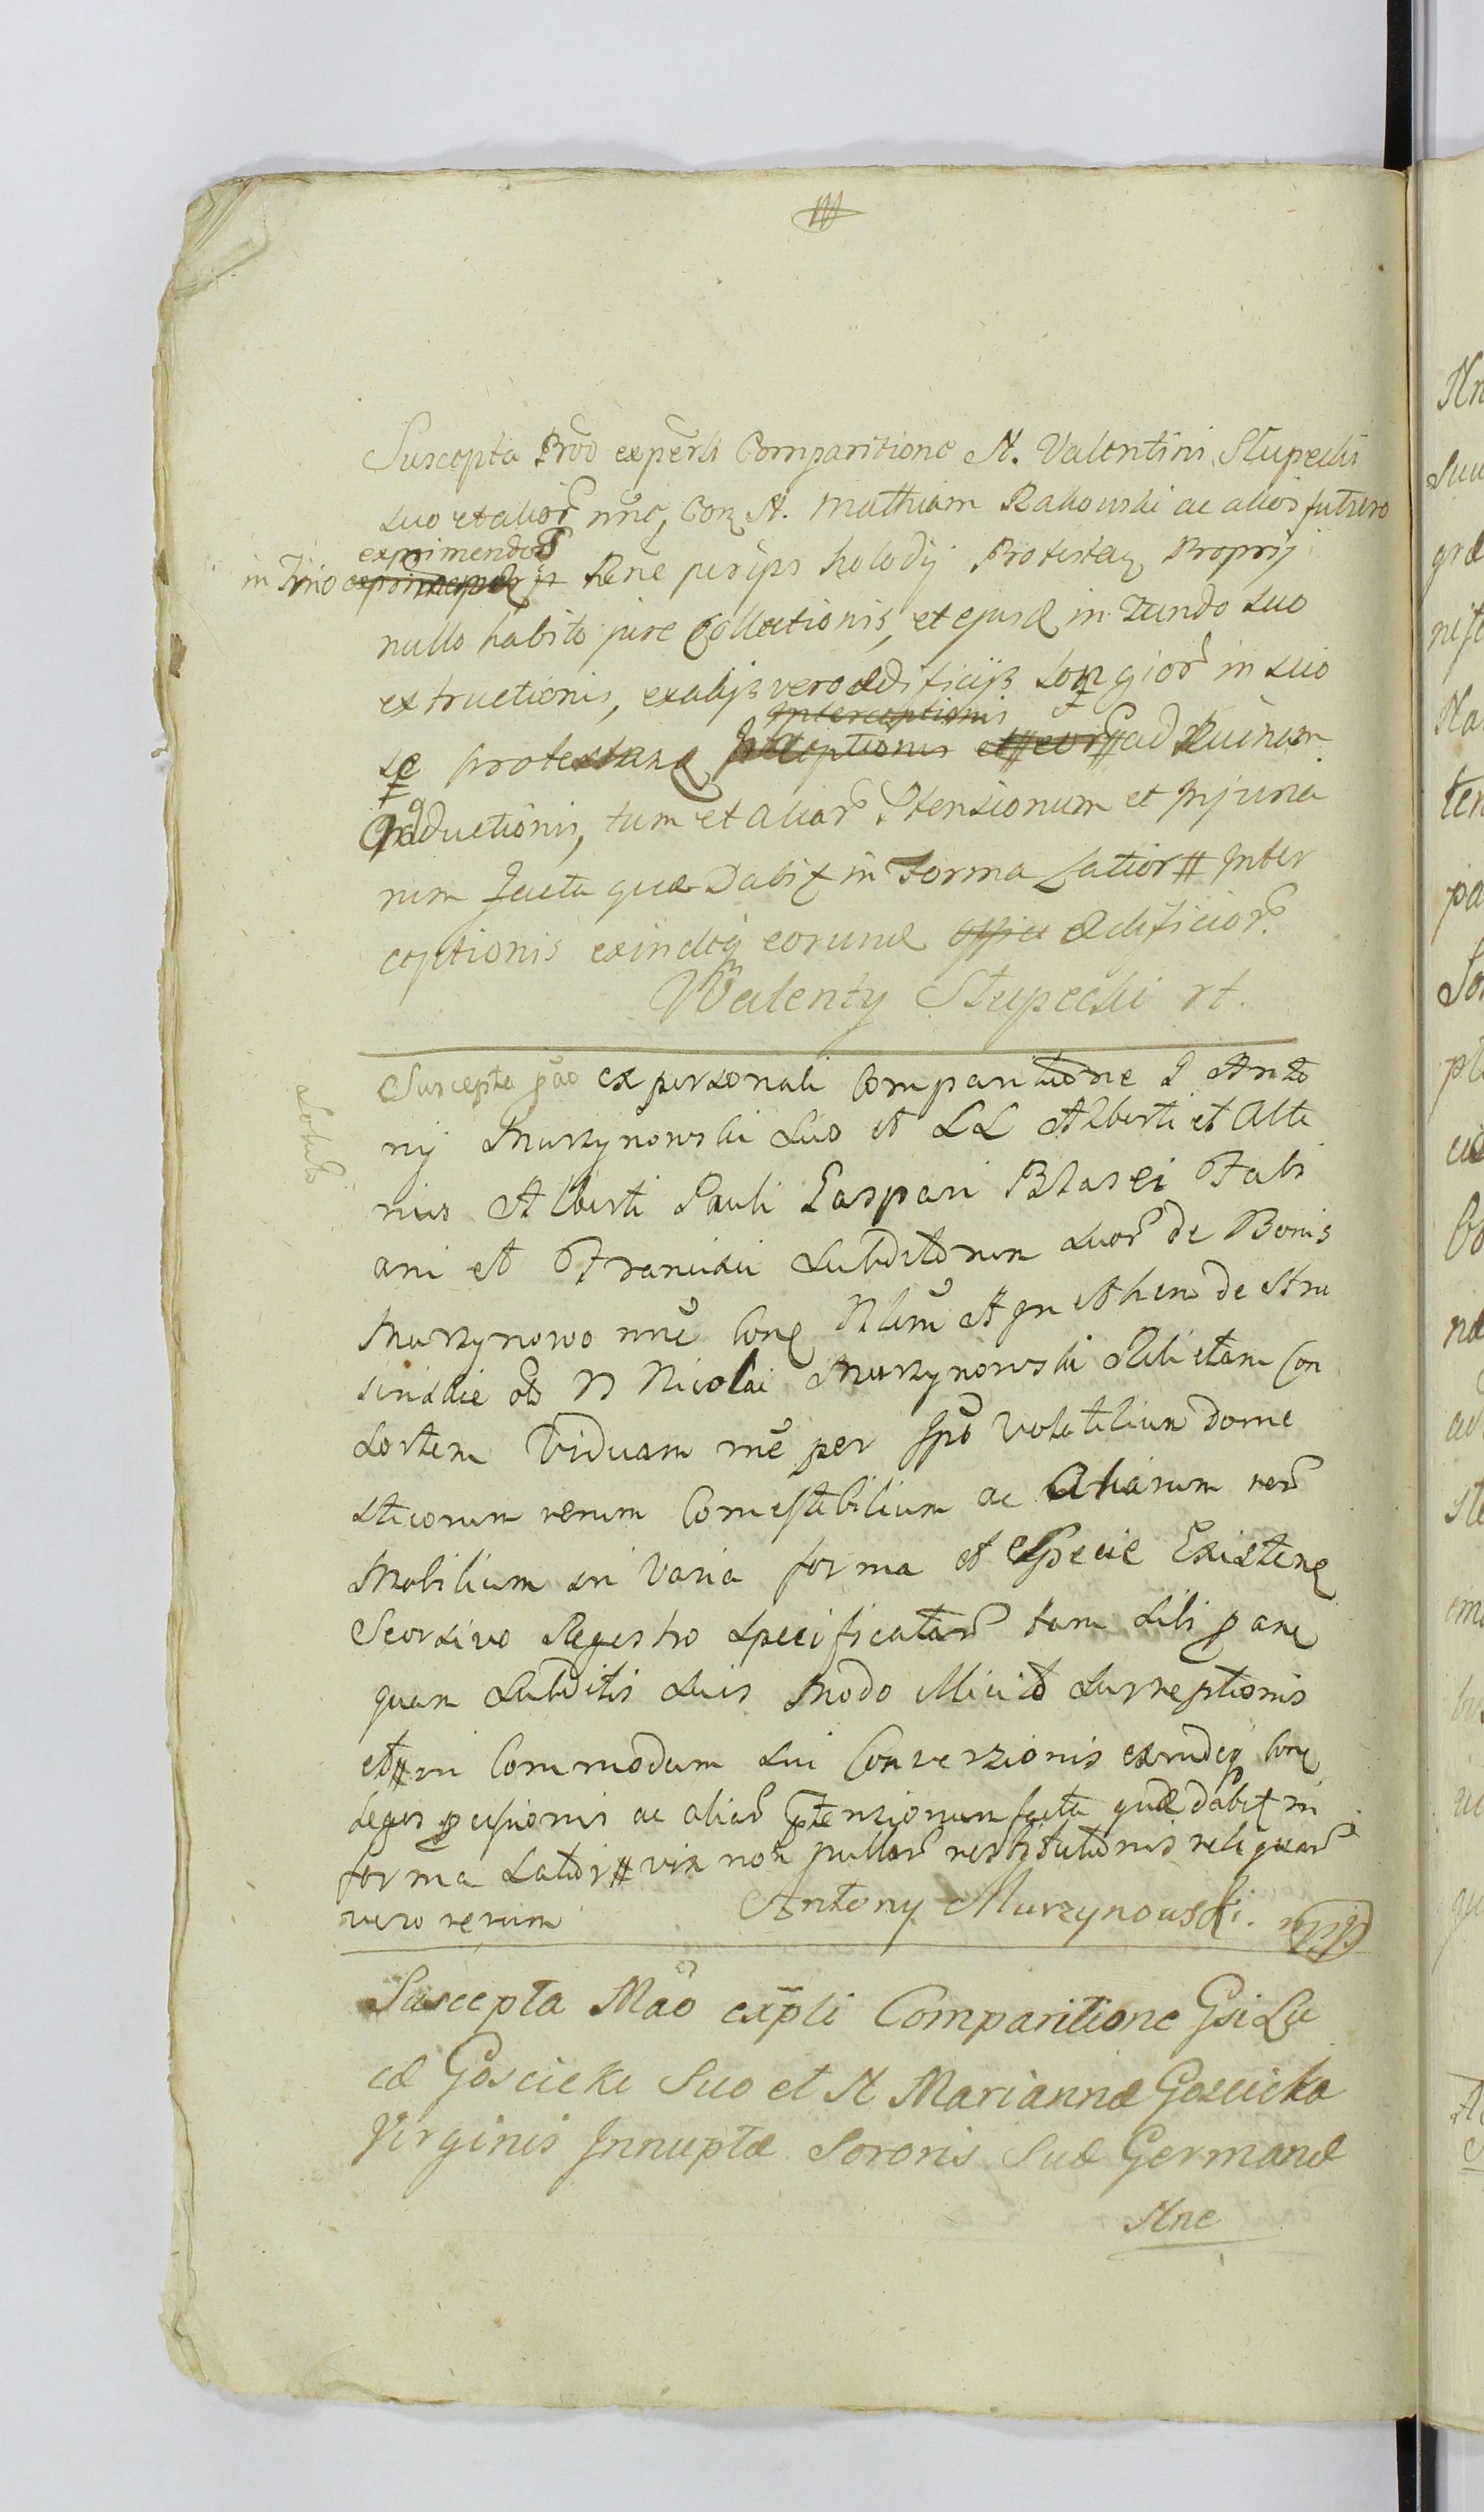 Suscepta Prõo expersli Comparitione N. Valentini Słupecki
suo et alior nn͠e, Con N. Mathiam Rakowski ac alios futuro
exprimendos
in Trno Rñe per ips kolody Protestan Proprij
nullo habito jure Collectionis, et ejusd in Fundo suo
extructionis, exalijs vero ædificijs longior in suo
Interceptionis
se protestan ad Ruinam
adductionis, tum et aliar Ptensionum et Injuria
rum facta quæ Dabit in Forma Latior # Inter
ceptionis exindeq eorumd Ædificior.
Walenty Słupecki rt.
Suscepta p͠ao ex personali Comparitione G Anto
nij Murzynowski suo et LL Alberti et Alte
rius Alberti Pauli Caspari Blasei Fabi
ani et Francisci Subditorum suor de Bonis
Murzynowo nn͠e Con Nlem Agnethem de
olo N Nicolai Murzynowski Relictam Con
sortem Viduam rñe per Ipso Volatilium dome
sticorum rerum Comestibilium ac Aliarum rer
Mobilium in Varia forma et Specie Existen
Seorsivo Regestro specificatar tam sibi p an
quam Subditis suis Modo illicito Surreptionis
et # in Commodum sui Conversionis exindeq Con
leges pcussionis ac aliar ptensionum facta quæ dabit in
forma Latior # vix non nullar restitutionis reliquar
vero rerum
Antony Murzynowski.
Suscepta Mão exp͠li Comparitione Gsi Lu
cæ Goscicki Suo et N Mariannæ Goscicka
Virginis Innuptæ Sororis Suæ Germanæ
Nne